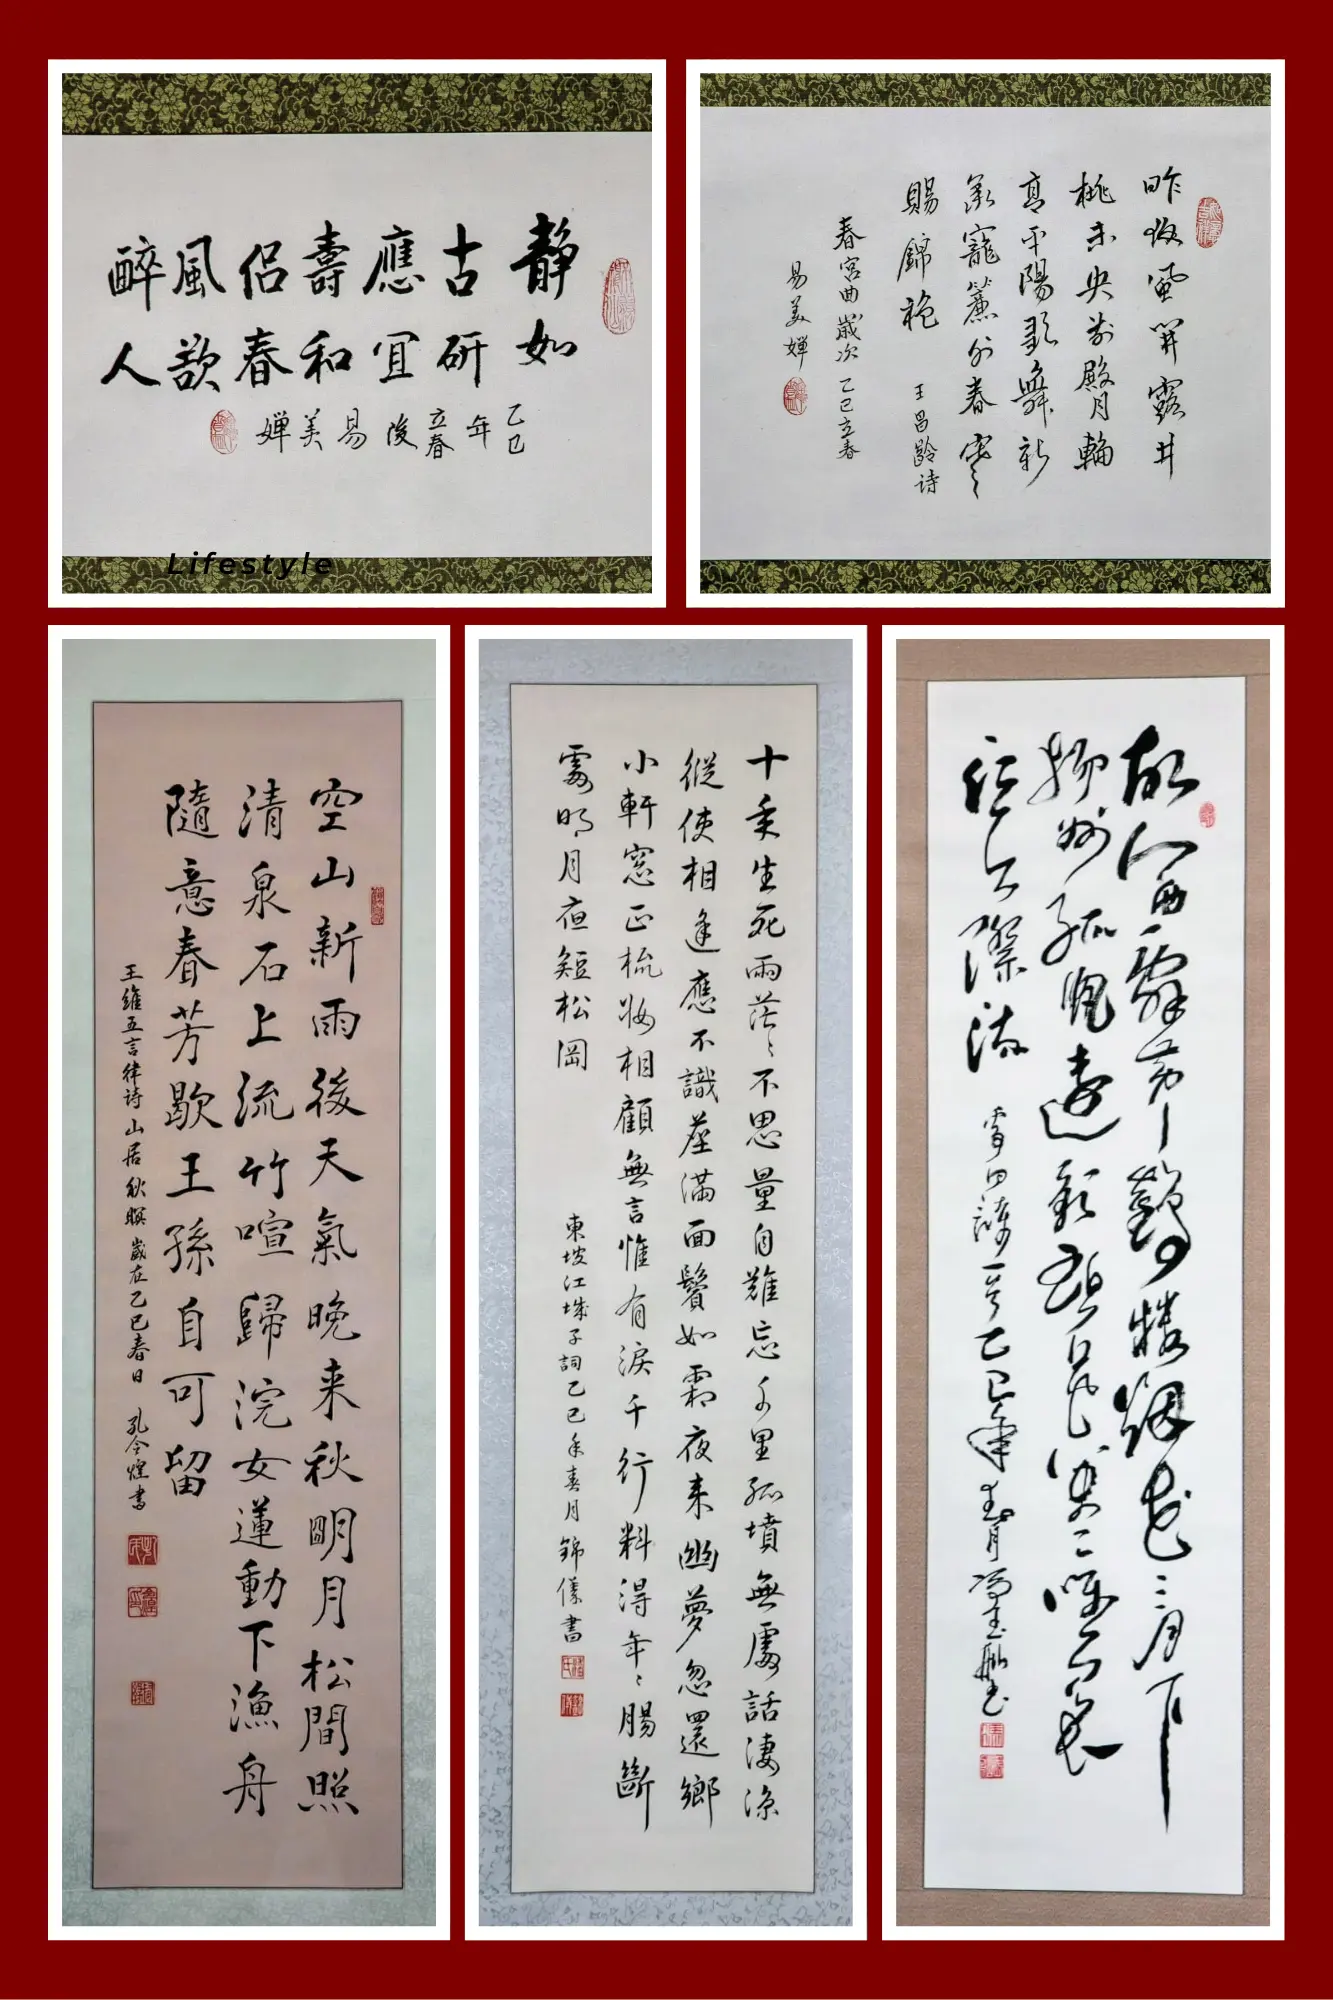 静如
古研
應宜
壽和
侣春
風欲
醉人
乙巳
年
立春
後
易
美
婵
Lifestyle
昨夜風開露井
桃未央前殿月輪
高平陽歌舞新
承寵簾外春寒
賜錦袍 王昌齡诗
春宫曲歲次乙巳立春
易美婵
空山新雨後天氣晚来秋明月松間照
清泉石上流竹喧歸浣女蓮動下漁舟
隨意春芳歇王孫自可留
王維五言律詩山居秋暝歲在乙巳春日 孔令煌書
十年生死兩茫々不思量自難忘千里孤墳無處話淒涼
縱使相逢應不識塵滿面鬢如霜夜来幽夢忽還鄉
小軒窓正梳妝相顧無言惟有淚千行料得年々腸斷
處明月夜短松岡
東坡江城子詞乙巳年春月錦儀書
故人西辭黄鶴樓烟花三月下
揚州孤帆遠影碧空盡唯見長
江天際流
乙巳年春月